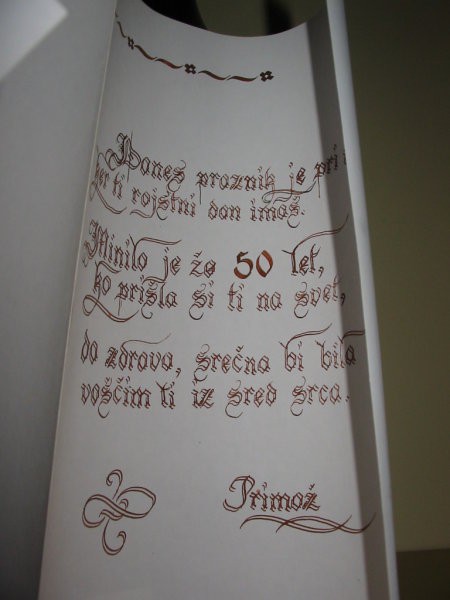 Danes praznik je pri
ker ti rojstni dan imaš.
Minilo je že 50 let,
ko prišla si ti na svet,
da zdrava, srečna bi bila
voščim ti iz sred srca.
Primož